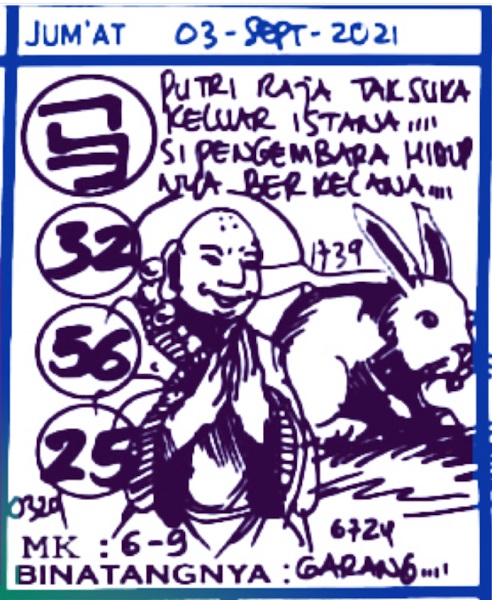 JUM'AT 03-SEPT-2021
PUTRI RAJA TAK SUKA
KELUAR ISTANA....
SI PENGEMBARA HIDUP
NYA BERKELANA....
32
1739
56
25
6724
MK : 6-9
BINATANGNYA : GARANG....